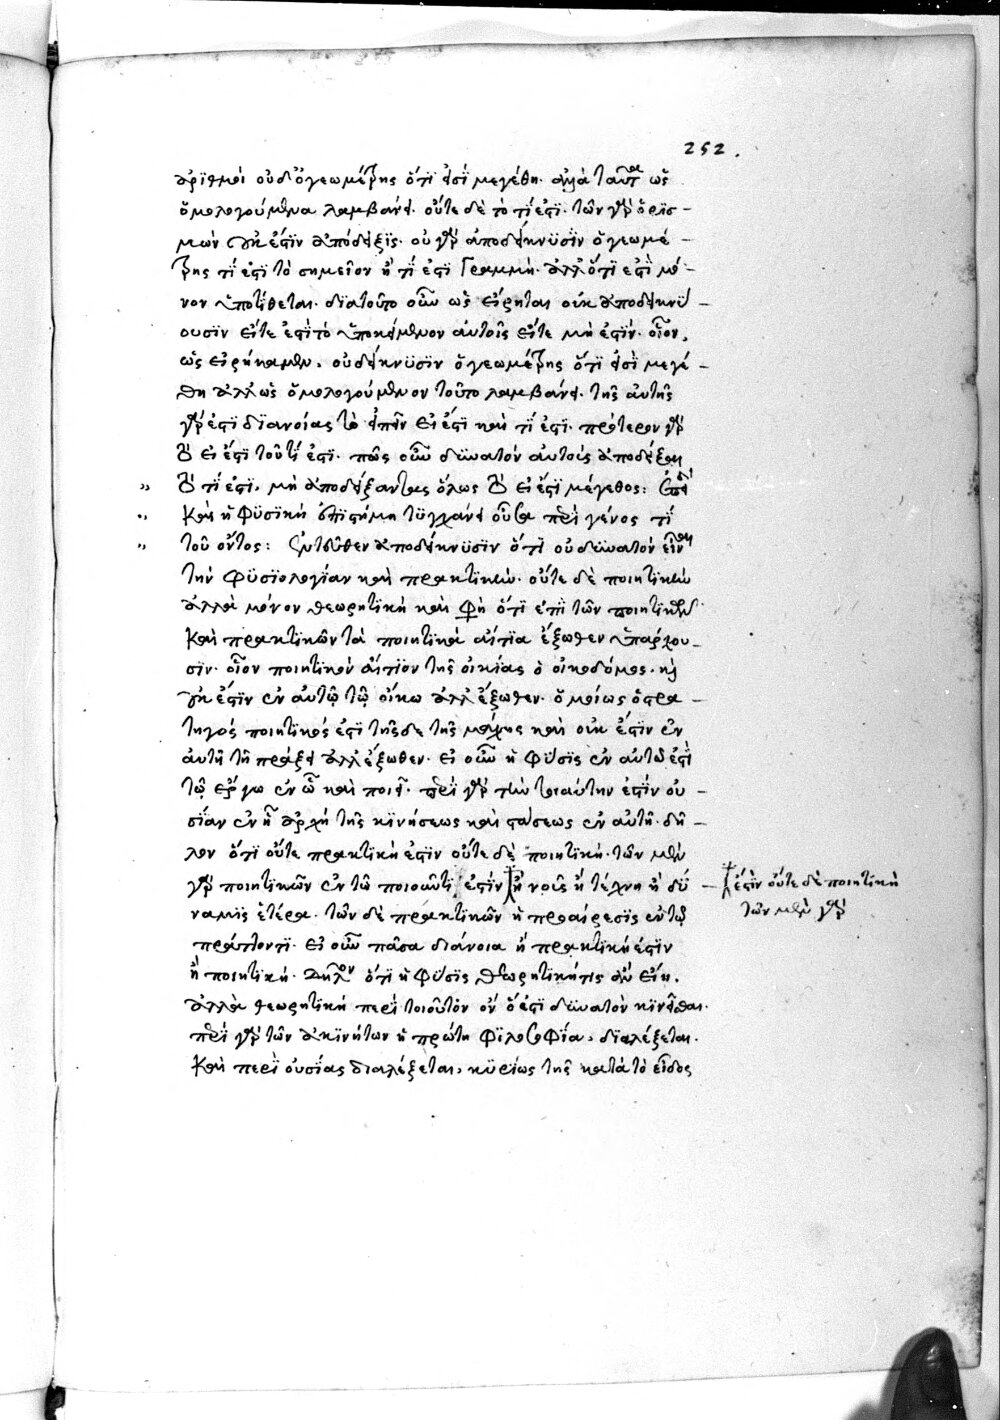 252.
ἀριθμοὶ οὐδ ὁ γεωμέτρης ὅτι εἰσὶ μεγέθη. ἀλλὰ ταῦτα ὡς
ὁμολογούμενα λαμβάνει. οὔτε δὲ τὸ τί ἐστι. τῶν γὰρ ὁρισ-
μῶν οὐκ ἔστιν ἀπόδειξις. οὐ γὰρ ἀποδείκνυσιν ὁ γεωμέ-
τρης τί ἐστι τὸ σημεῖον ἢ τί ἐστι γραμμή. ἀλλ ὅτι ἐστὶ μό-
νον ὑποτίθεται. διατοῦτο οὖν ὡς εἴρηται οὐκ ἀποδεικνύ-
ουσιν εἴτε ἐστὶ τὸ ὑποκείμενον αὐτοῖς εἴτε μὴ ἐστίν. οἷον,
ὡς εἰρήκαμεν, οὐ δείκνυσιν ὁ γεωμέτρης ὅτι εἰσὶ μεγέ-
θη ἀλλ ὡς ὁμολογούμενον τοῦτο λαμβάνει. τῆς αὐτῆς
γάρ ἐστι διανοίας τὸ εἰπεῖν εἰ ἔστι καὶ τί ἐστι. πρότερον γὰρ
τὸ εἰ ἔστι τοῦ τί ἐστι. πῶς οὖν δύνατὸν αὐτοὺς ἀποδεῖξαι
" τὸ τί ἐστι, μὴ ἀποδείξαντας ὅλως τὸ εἰ ἔστι μέγεθος: ἐπεὶ
" καὶ ἡ φυσικὴ ἐπιστήμη τυγχάνει οὖσα περὶ γένος τί
" τοῦ ὄντος: ἐντεῦθεν ἀποδείκνυσιν ὅτι οὐ δυνατὸν εἶναι
τὴν φυσιολογίαν καὶ πρακτικὴν. οὔτε δὲ ποιητικὴν
ἀλλὰ μόνον θεωρητικὴ καὶ φησὶ ὅτι ἐπὶ τῶν ποιητικῶν
καὶ πρακτικῶν τὰ ποιητικὰ αἴτια ἔξωθεν ὑπάρχου-
σιν. οἷον ποιητικὸν αἴτιον τῆς οἰκίας ὁ οἰκοδόμος. καὶ
οὐκ ἔστιν ἐν αὐτῷ τῷ οἴκω ἀλλ ἔξωθεν. ὁμοίως ὁ στρα-
τηγός ποιητικός ἐστι τῆσδε τῆς μάχης καὶ οὐκ ἔστιν ἐν
αὐτῆ τῆ πράξει ἀλλ ἔξωθεν. εἰ οὖν ἡ φύσις ἐν αὐτῶ ἐστὶ
τῷ ἔργω ἐν ὧ καὶ ποιεῖ. περὶ γὰρ τὴν τοιαύτην ἐστὶν οὐ-
σίαν ἐν ἧ ἀρχὴ τῆς κινήσεως καὶ στάσεως ἐν αὐτῆ. δῆ-
λον ὅτι οὔτε πρακτική ἐστιν οὔτε δὲ ποιητική. τῶν μὲν
γὰρ ποιητικῶν ἐν τῶ ποιοῦντι ἐστὶν ἢ νοῦς ἢ τέχνη ἢ δύ-
ναμις ἑτέρα. τῶν δὲ πρακτικῶν ἡ προαίρεσις ἐν τῷ
πράττοντι. εἰ οὖν πᾶσα διάνοια ἢ πρακτική ἐστιν
ἢ ποιητική. δῆλον ὅτι ἡ φύσις θεωρητική τις ἂν εἴη.
ἀλλὰ θεωρητικὴ περὶ τοιοῦτον ὂν ὅ ἐστι δυνατὸν κινεῖσθαι.
περὶ γὰρ τῶν ἀκινήτων ἡ πρώτη φιλοσοφία, διαλέξεται.
καὶ περὶ οὐσίας διαλέξεται, κυρίως τῆς κατὰ τὸ εἶδος
ἐστὶν οὔτε δὲ ποιητικὴ
τῶν μὲν γὰρ